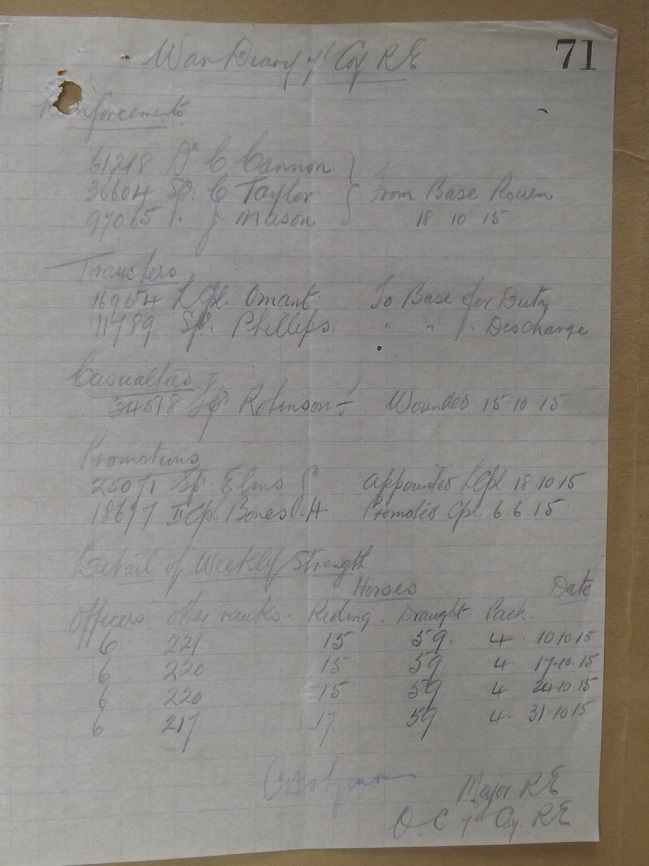 71
War Diary 7th Coy RE
Reinforcements
61218 Dr C Cannon
36604 Sp. C Taylor } From Base Rouen
97065 " J Mason } 18 10 15
Transfers
L Cpl. Omant To Base for Duty
11789 Sp. Phillips. " " " Discharge
Casualties
34578 Sp Robinson J Wounded 15 10 15
Promotions
25071 Sp. Elms G appointed L Cpl 18 10 15
18697 II Cpl. Bones A Promoted Cpl. 6.6.15
Detail of Weekly Strength
Horses Date
Officers other ranks. Riding. Draught Pack.
6 221 15 59. 4 10 10 15
6 220 15 59 4 17.10.15
6 220 15 59 4 24.10 15
6 217 17. 59 4 31.10 15
Major RE
O.C 7th Coy. RE